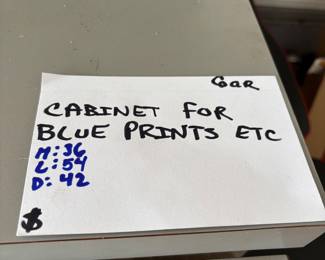 Gar
CABINET FOR
BLUE PRINTS ETC
H: 36
L: 54
D: 42
$